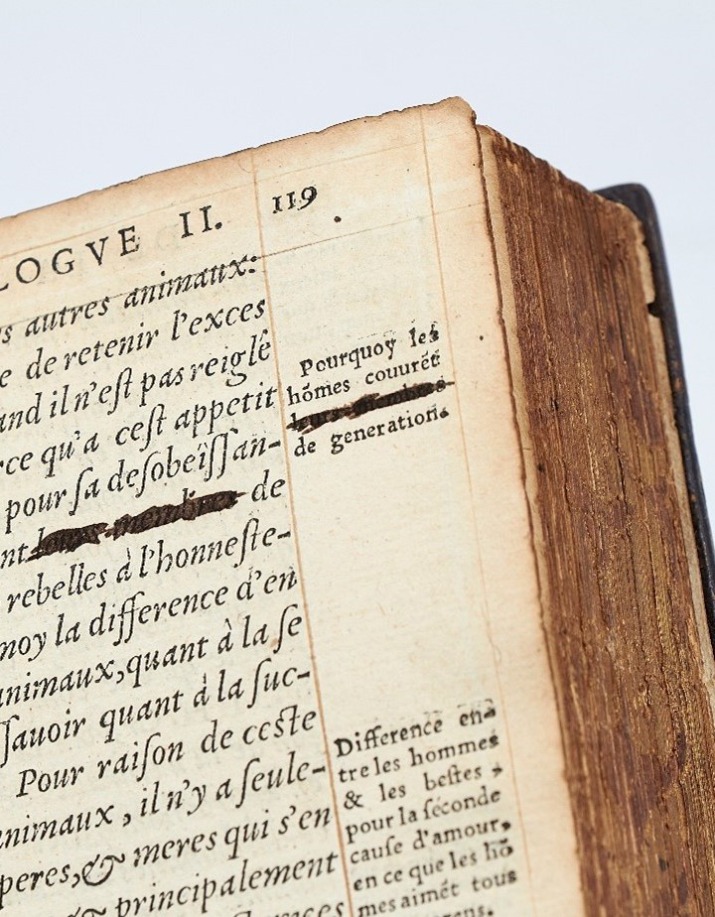 LOGVE II. 119
s autres animaux:
e de retenir l'exces
and il n'eſt pas reiglé
rce qu'a ceſt appetit
pour ſa deſobeïſſan-
nt leurs membres de
rebelles à l'honneſte-
moy la difference d'en
animaux, quant à la ſe
ſſauoir quant à la ſuc-
Pour raiſon de ceſte
animaux, il n'y a ſeule-
peres, & meres qui s'en
& principalement
Pourquoy les
hõmes couurẽt
leurs membres
de generation.
Difference en-
tre les hommes
& les beſtes,
pour la ſeconde
cauſe d'amour,
en ce que les hõ
mes aimẽt tous